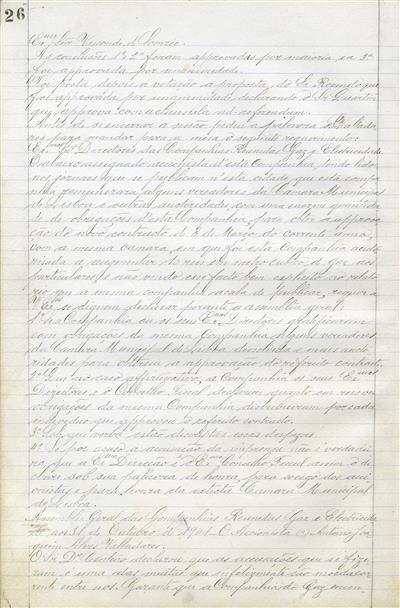 26
Ex.mo Snr Visconde d'
As conclusões 1ª e 2ª foram approvadas por maioria, e a 3ª
foi approvada por unanimidade.
Foi posta depois á votação a proposta do Sr. que
foi approvada por unanimidade, declarando o Sr.
que approva com a clausula ad referendum.
Antes de se encerrar a sessão pediu a palavra o Sr.
res para mandar para a mesa o seguinte requerimento:
Ex.mos Srs. Directores das Companhias Reunidas Gaz e Electricidade
O abaixo assignado, accionista d'esta Companhia, tendo lido
nos jornaes que se publicam n'esta cidade que esta compa-
nhia remunerára alguns vereadores da Camara Municipal
de Lisboa e outras auctoridades, com uma enorme quantida
de de obrigações d'esta Companhia para obter a approva
ção do novo contracto de 8 de Março do corrente anno,
com a mesma camara, em que foi esta Companhia aucto
risada a augmentar reis em metro cubico de gaz aos
particulares, e não vendo este facto bem explicito no relato
rio que a mesma companhia acaba de publicar, requer a
V.as Ex.as se dignem declarar perante a assembléa geral:
1º Se a Companhia ou os seus Ex.mos Directores gratificaram
com obrigações da mesma Companhia alguns vereadores
da Camara Municipal de Lisboa, e mais aucto
ridades para obterem a approvação do referido contracto.
2º Que no caso affirmativo, a Companhia, os seus Ex.mos
Directores e o Conselho Fiscal declarem quanto em reis ou
obrigações da mesma Companhia distribuiram por cada
individuo que approvou o referido contracto.
3º Sob que verba estão descriptas essas despezas.
4º Se por acaso a accusação da imprensa não é verdadei
ra, que a Ex.ma Direcção e o Ex.mo Conselho Fiscal assim o de
clarem sob sua palavra de honra, para socego dos acci
onistas e para honra da actual Camara Municipal
de Lisboa.
Assembléa Geral das Companhias Reunidas Gaz e Electricida
de aos 31 de Outubro de 1901 - O Accionista, Antonio Joa
quim Alves Valladares.
O Sr. Dr. Centeno declarou que as accusações que se fize
ram é uma d'ellas muitas que infelizmente são
entre nós. Garante que a Companhia do Gaz nem